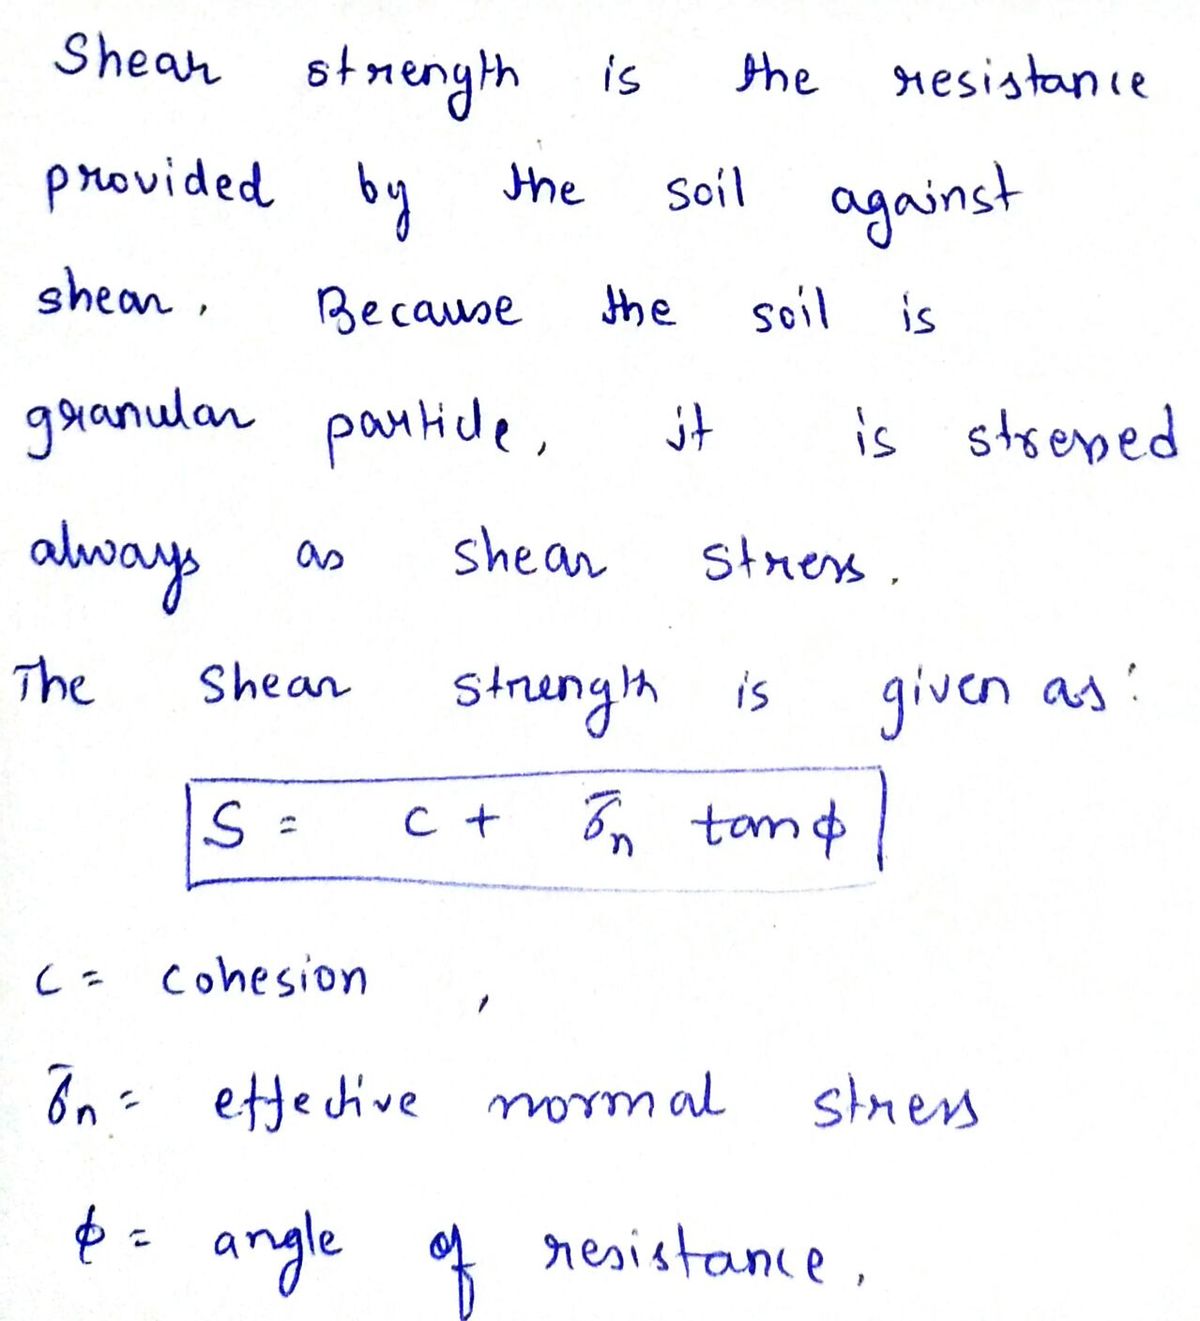 Shear strength is the resistance
provided by the soil against
shear. Because the soil is
granular particle, it is stressed
always as shear stress.
The shear strength is given as:
S = c + σ̄n tanϕ
c = cohesion,
σ̄n = effective normal stress
ϕ = angle of resistance.